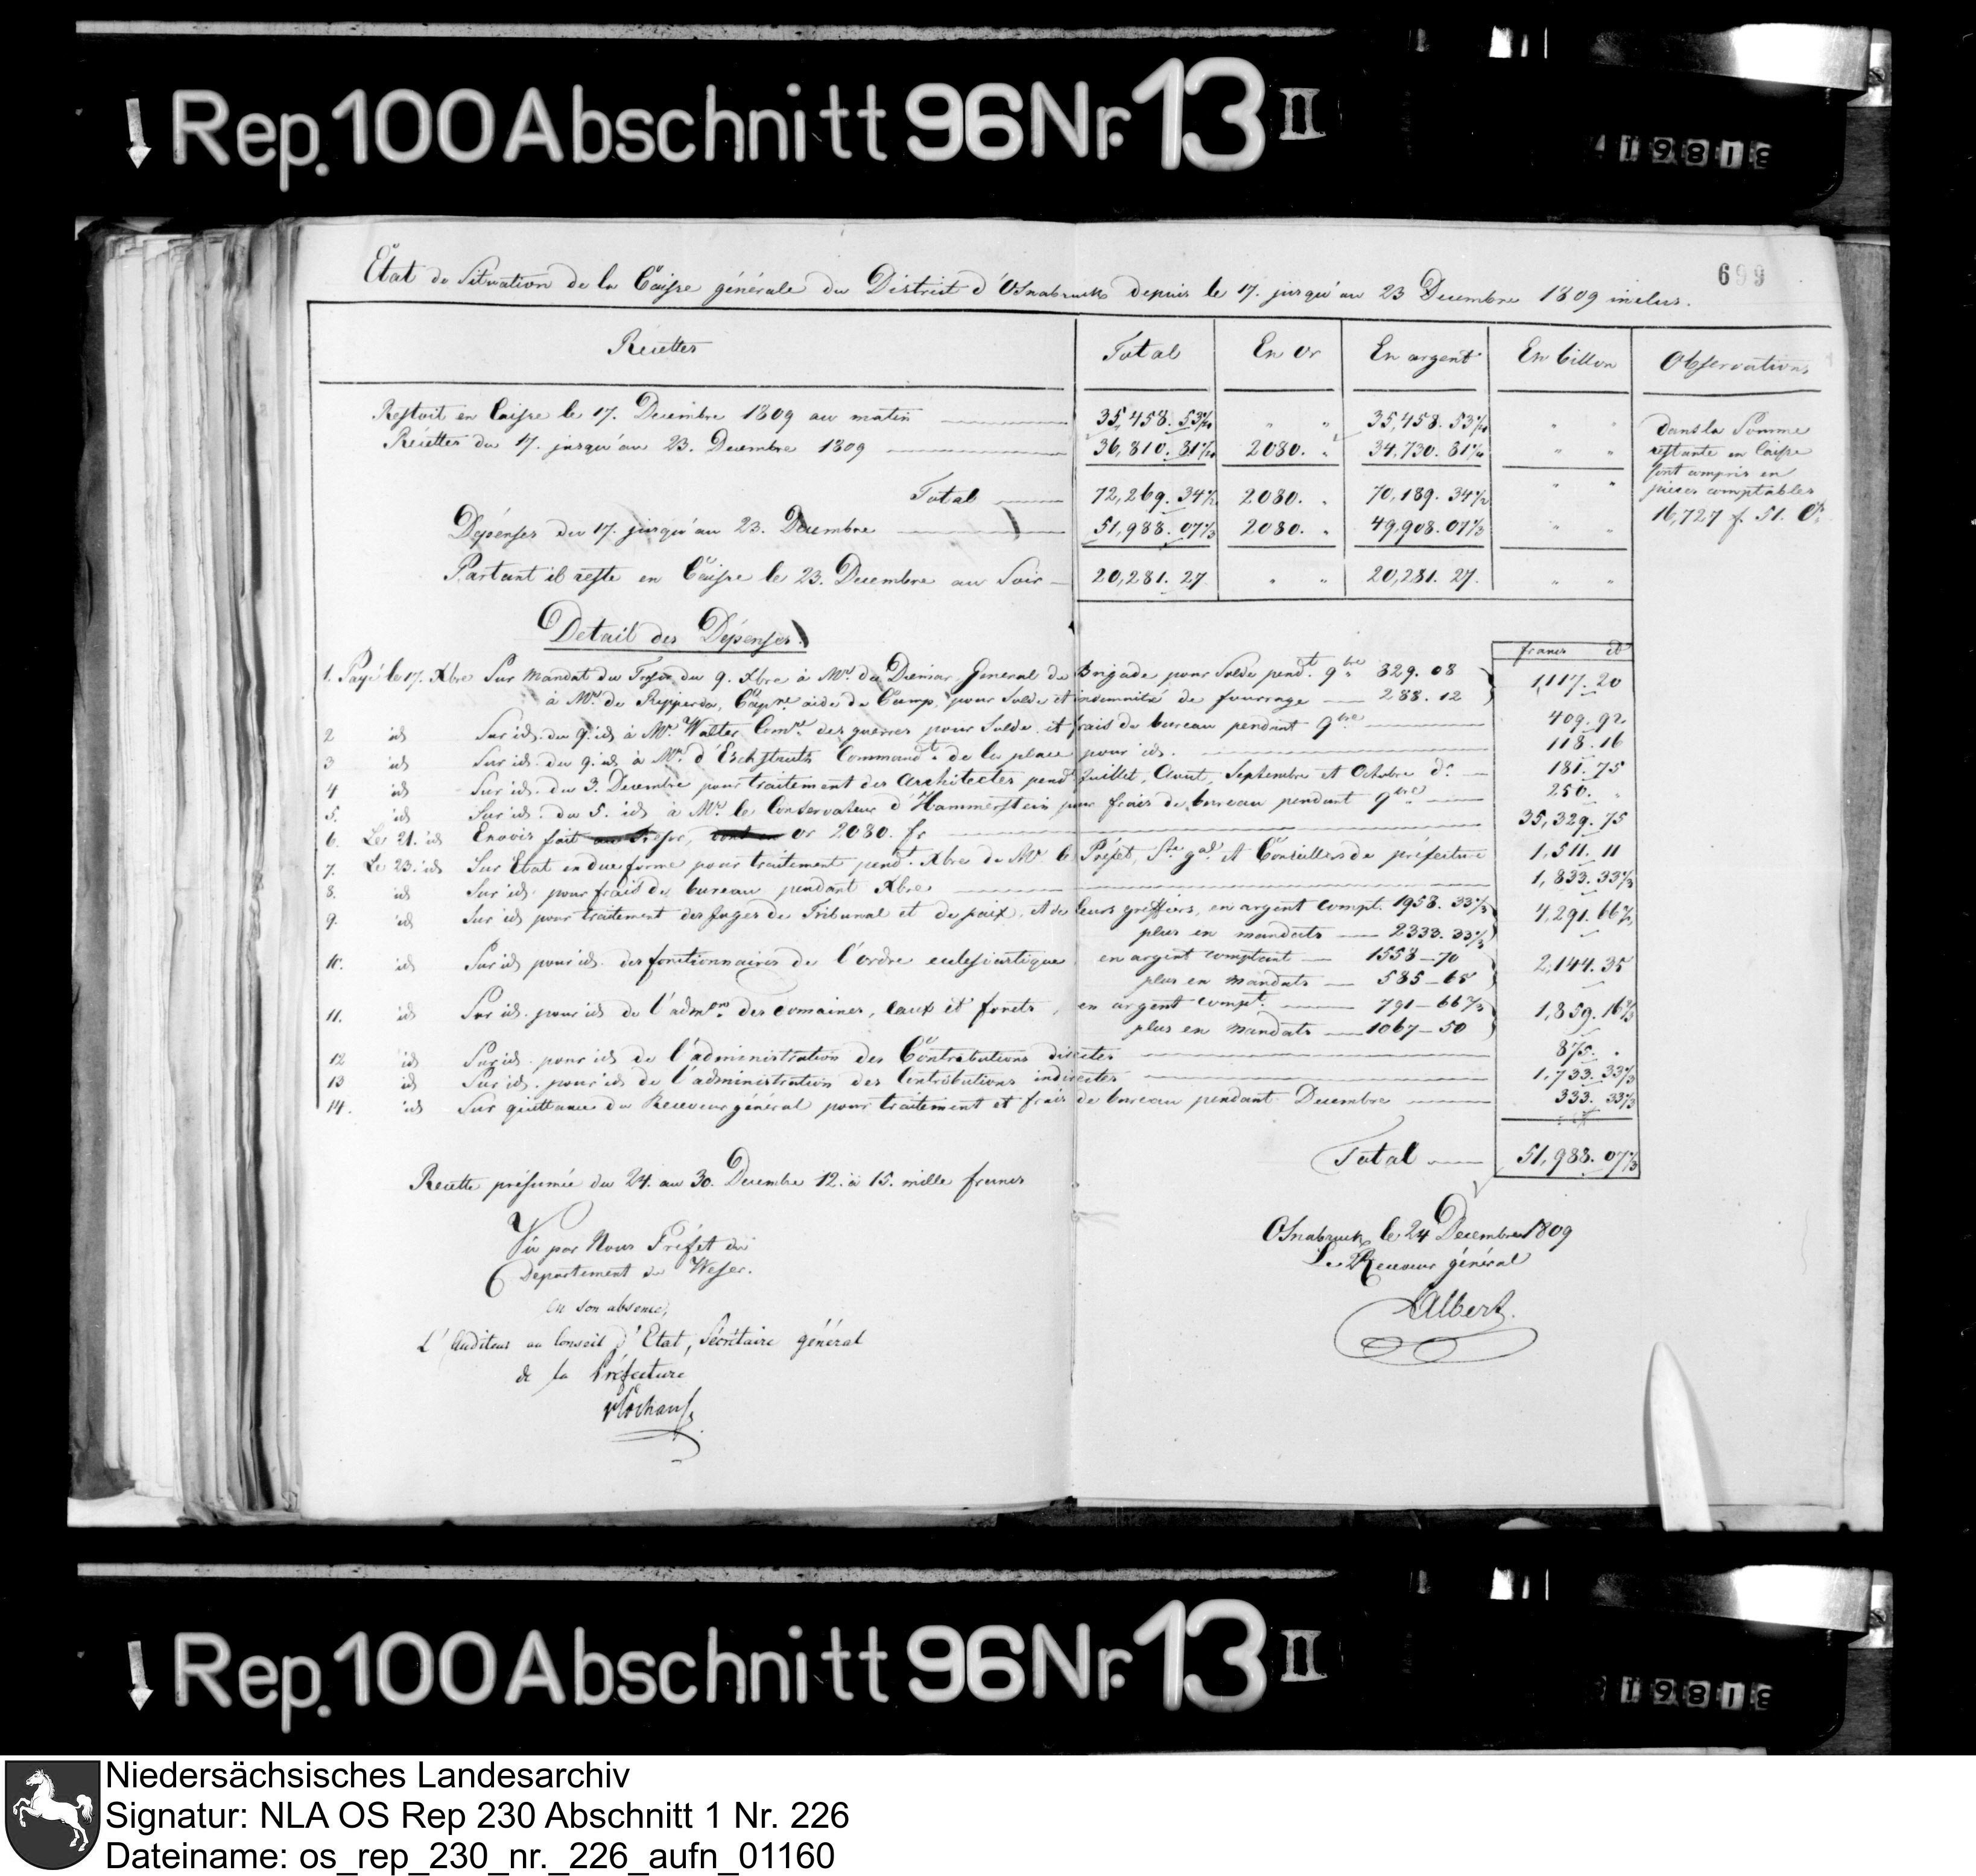 Rep. 100 Abschnitt 96 Nr. 13 II
699
Etat de Situation de la Caisse générale du District d'Osnabruck depuis le 17. jusqu'au 23 Decembre 1809 inclus.
Recettes Total En or En argent En billon Observations
Restoit en Caisse le 17. Decembre 1809 au matin 35,458. 53 " " 35,458. 53 " "
Récettes du 17. jusqu'au 23. Decembre 1809 36,810. 81 2080. " 34,730. 81 " "
Total 72,269. 34½ 2080. " 70,189. 34½ " "
Dépenses du 17. jusqu'au 23. Decembre 51,988. 07⅓ 2080. " 49,908. 07⅓ " "
Partant il reste en Caisse le 23. Decembre au Soir 20,281. 27 " " 20,281. 27. " "
dans la Somme
restante en Caisse
sont compris en
pieces comptables
16,727 f. 51. Cs.
Detail des Dépenses.
francs cs
1. Payé le 17. Xbre Sur Mandat du Tresor du 9. Xbre à Mr. de Diemar, General de Brigade pour Solde pendt. 9bre 829. 08
à Mr. de Ripperda, Capne aide de Camp, pour Solde et indemnité de fourrage 288. 12 1,117. 20
2 id Sur id. du 9. id à Mr. Walter Comre. des guerres pour Solde et frais de bureau pendant 9bre 409. 92
3 id Sur id. du 9. id à Mr. d'Eschstruth Commandt. de la place pour id. 118. 16
4 id Sur id. du 3. Decembre pour traitement des Architectes pendt Juillet, Aout, Septembre et Octobre dr. 181. 75
5. id Sur id. du 5. id à Mr. le Conservateur d'Hammerstein pour frais de bureau pendant 9bre 250. "
6. Le 21. id Envois fait au Tresor, or 2080. fr 35,329. 75
7. Le 23. id Sur Etat en due forme pour traitement pendt. Xbre de Mr. le Préfet, Sre. gal. et Conseillers de préfecture 1,511. 11
8. id Sur id. pour frais de bureau pendant Xbre 1,833. 33⅓
9. id Sur id pour traitement des Juges de Tribunal et de paix, et de leurs greffiers, en argent compt. 1958. 33⅓
plus en mandats 2333. 33⅓ 4,291. 66⅔
10. id Sur id pour id. des fonctionnaires de l'ordre eclesiastique en argent comptant 1558-70
plus en mandats 585-65 2,144. 35
11. id Sur id. pour id de l'admon. des domaines, eaux et forets, en argent compt. 791-66⅔
plus en mandats 1067-50 1,859. 16⅔
12 id Sur id. pour id de l'administration des Contributions directes 875. "
13 id Sur id. pour id de l'administration des Contributions indirectes 1,733. 33⅓
14. id Sur quittance du Receveur général pour traitement et frais de bureau pendant Decembre 333. 33⅓
Total 51,988. 07⅓
Recette présumée du 24. au 30. Decembre 12. à 15. mille francs
Vu par Nous Préfet du
Departement du Weser.
en son absence,
L'Auditeur au Conseil d'Etat, Sécrétaire général
de la Préfecture
Osnabruck le 24 Decembre 1809
Le Receveur général
Albert.
Rep. 100 Abschnitt 96 Nr. 13 II
Niedersächsisches Landesarchiv
Signatur: NLA OS Rep 230 Abschnitt 1 Nr. 226
Dateiname: os_rep_230_nr._226_aufn_01160